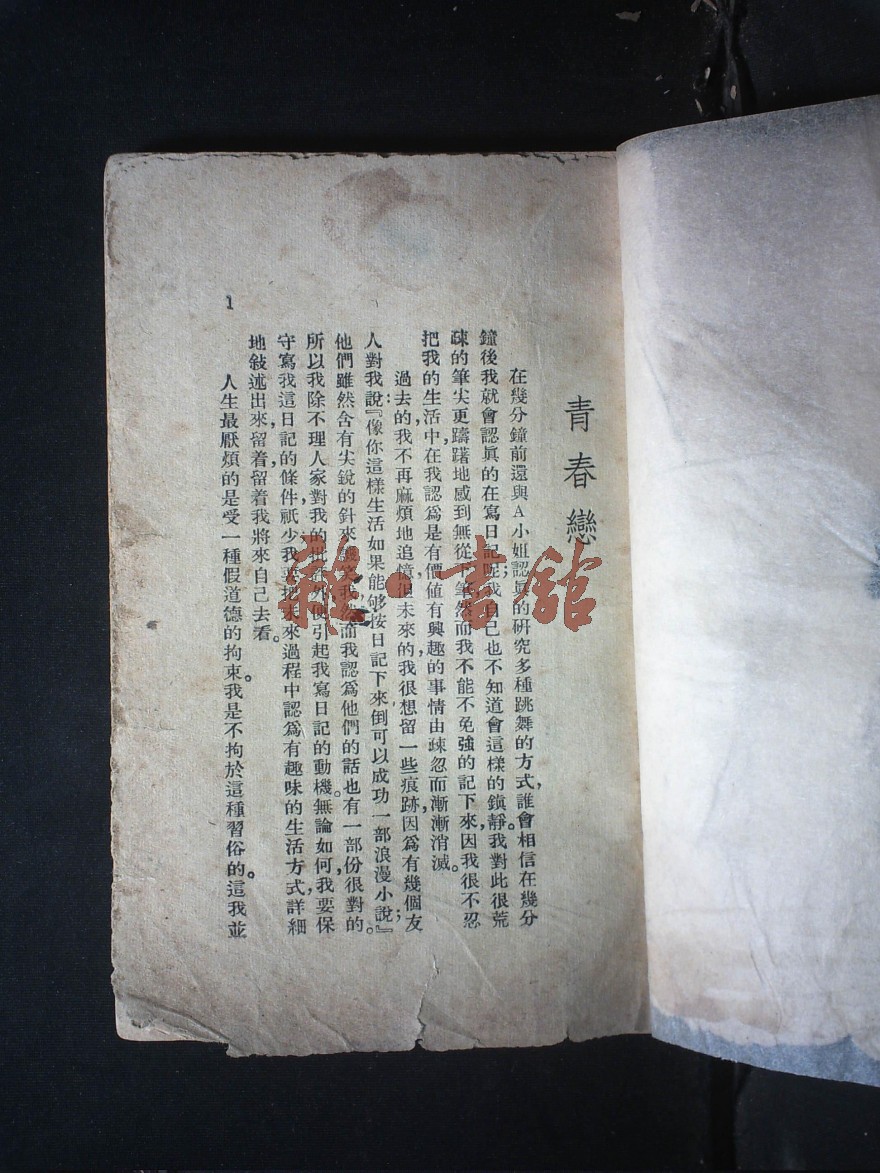 青春戀
在幾分鐘前還與A小姐認眞的硏究多種跳舞的方式,誰會相信在幾分
鐘後我就會認眞的在寫日記呢我自己也不知道會這樣的鎭靜。我對此很荒
疎的筆尖更躊躇地感到無從下筆,然而我不能不免強的記下來,因我很不忍
把我的生活中,在我認爲是有價値有興趣的事情由疎忽而漸漸消滅。
過去的我不再麻煩地追憶,但未來的我很想留一些痕跡,因爲有幾個友
人對我說:『像你這樣生活如果能够按日記下來倒可以成功一部浪漫小說』;
他們雖然含有尖銳的針來 我,然而我認爲他們的話也有一部份很對的。
所以我除不理人家對我的批評外,便引起我寫日記的動機。無論如何,我要保
守寫我這日記的條件,祇少我要把未來過程中認爲有趣味的生活方式詳細
地敍述出來,留着,留着我將來自己去看。
人生最厭煩的是受一種假道德的拘束。我是不拘於這種習俗的。這我並
1
雜·書館